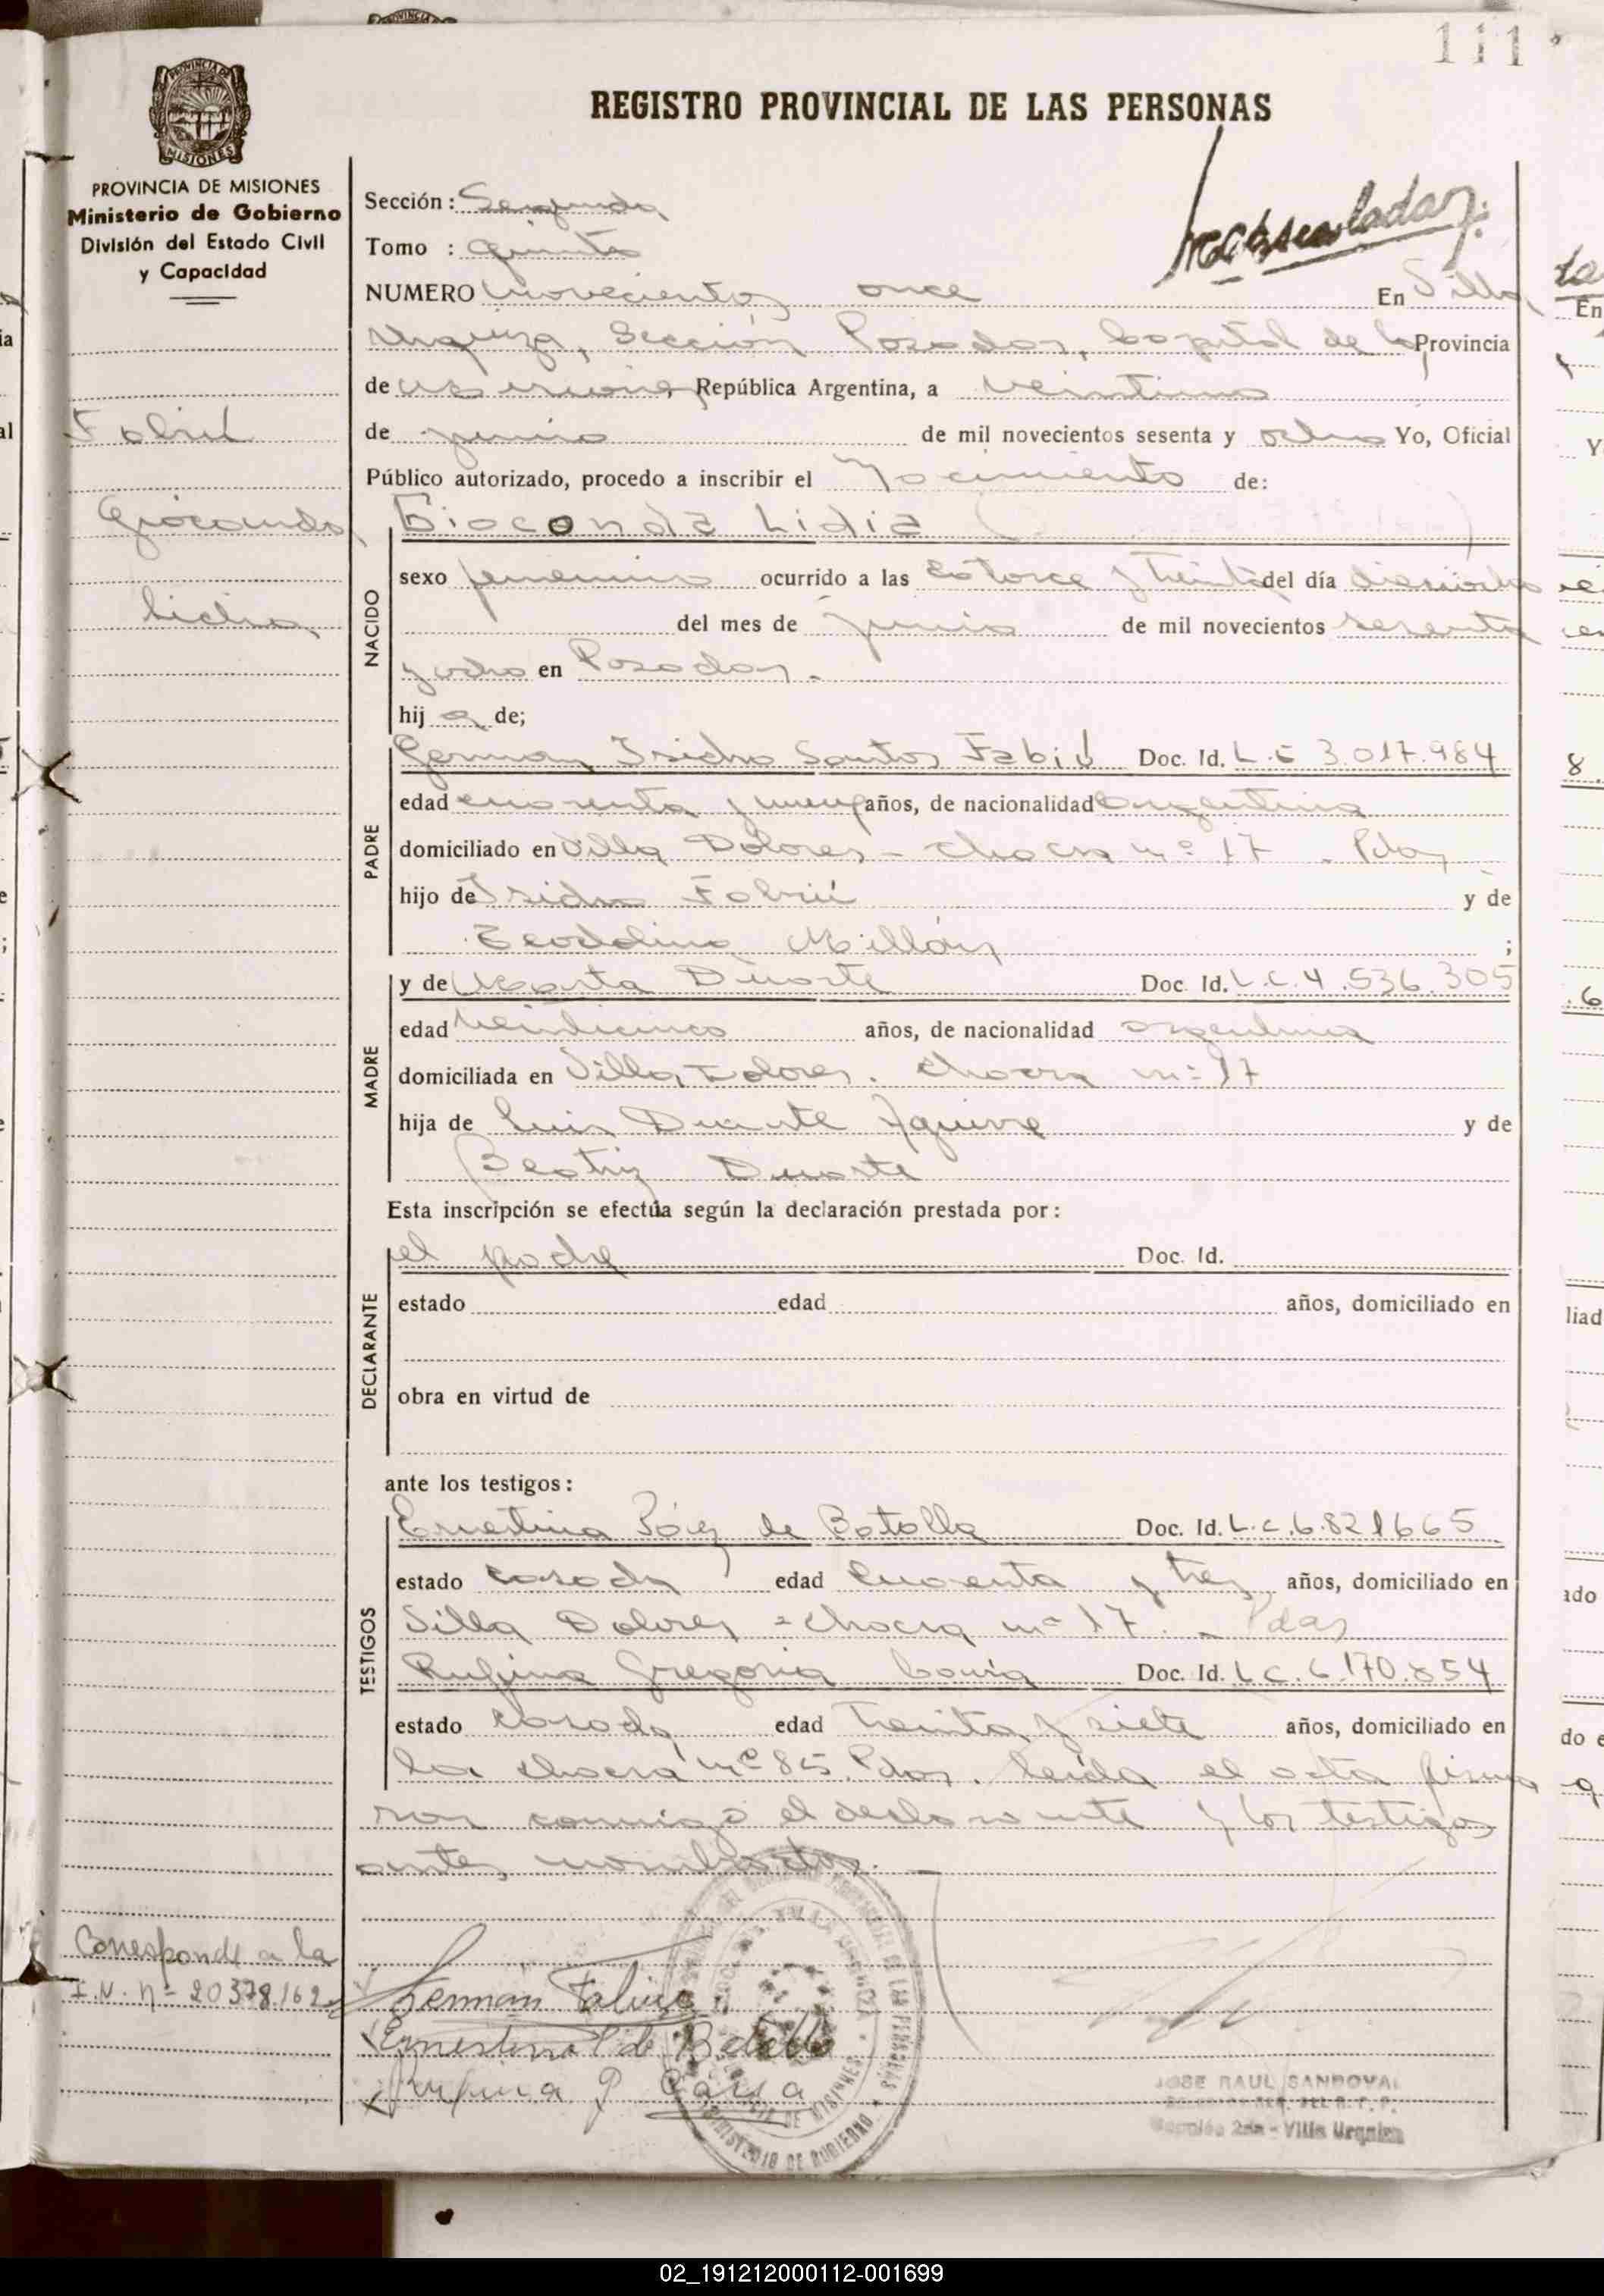 111
REGISTRO PROVINCIAL DE LAS PERSONAS
PROVINCIA DE MISIONES
Ministerio de Gobierno
División del Estado Civil
y Capacidad
Sección: Segunda
Tomo : quinto
NUMERO Novecientos once En Villa
Urquiza, Sección Posadas, Capital de la Provincia
de Misiones, República Argentina, a veintiuno
de junio de mil novecientos sesenta y ocho Yo, Oficial
Público autorizado, procedo a inscribir el Nacimiento de:
Gioconda
Lidia
Gioconda Lidia
NACIDO
sexo femenino ocurrido a las catorce y treinta del día dieciocho
del mes de junio de mil novecientos sesenta
y ocho en Posadas.
hij a de;
PADRE
German Isidro Santos Doc. Id. L.E 3.017.984
edad cuarenta y nueve años, de nacionalidad argentina
domiciliado en Villa Dolores - chacra nº 17. Pdas
hijo de Isidro y de
Millán ;
MADRE
y de Marta Duarte Doc. Id. L.C. 4.536.305
edad veinticinco años, de nacionalidad argentina
domiciliada en Villa Dolores. chacra nº 17
hija de Luis Duarte Aguirre y de
Beatriz Duarte
Esta inscripción se efectúa según la declaración prestada por:
DECLARANTE
el padre Doc. Id.
estado edad años, domiciliado en
obra en virtud de
ante los testigos:
TESTIGOS
Ernestina Páez de Batalla Doc. Id. L.C. 6.821665
estado casada edad cuarenta y tres años, domiciliado en
Villa Dolores - chacra nº 17. - Pdas
Rufina Gregoria Doc. Id. L.C. 6.170.854
estado casada edad treinta y siete años, domiciliado en
la chacra nº 85. Pdas. Leída el acta firma
ron conmigo el declarante y los testigos
antes nombrados. -
Corresponde a la
I.N. nº 20378.162
Germán
Ernestina P de Batalla
Rufina G
JOSE RAUL SANDOVAL
Sección 2da - Villa Urquiza
02_191212000112-001699